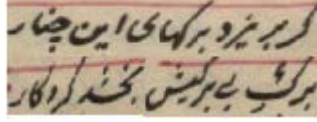 گر بریزد برگهای این چنار
برگ بی برگیش بخشد کردگار